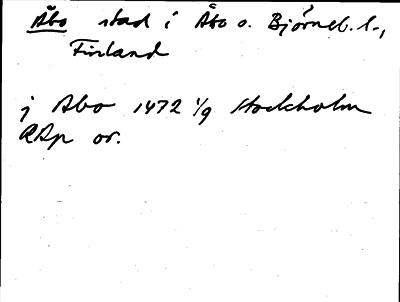 Åbo stad i Åbo o. Björneb. l.,
Finland
j Abo 1472 1/9 Stockholm
RAp or.